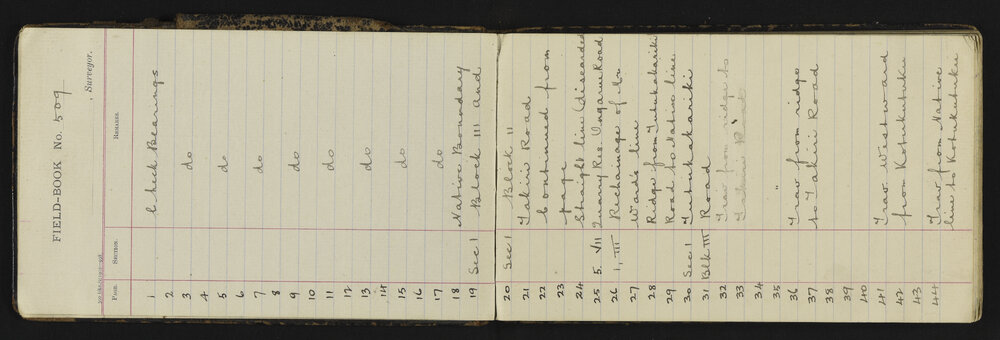 FIELD-BOOK No. 509
, Surveyor.
Page. Section. Remarks.
1 Check Bearings
2
3 do
4
5 do
6
7 do
8
9 do
10
11 do
12
13 do
14
15 do
16
17 do
18 Native Boundary
19 Sec 1 Block III and
20 Sec 1 Block II
21 Takiri Road
22 Continued from
23 page
24 Straight line (discarded
25 5 VII Quarry Res Ongarue Road
26 1, III Rechainage of Mr
27 Ward's line
28 Ridge from Tutukakariki
29 Road to Native line
30 Sec 1 Tutukakariki
31 Blk III Road
32 Trav from ridge to
33 Takiri Road
34
35 "
36 Trav from ridge
37 to Takiri Road
38
39
40
41 Trav Westward
42 from Kotukutuku
43
44 Trav from Native
line to Kotukutuku